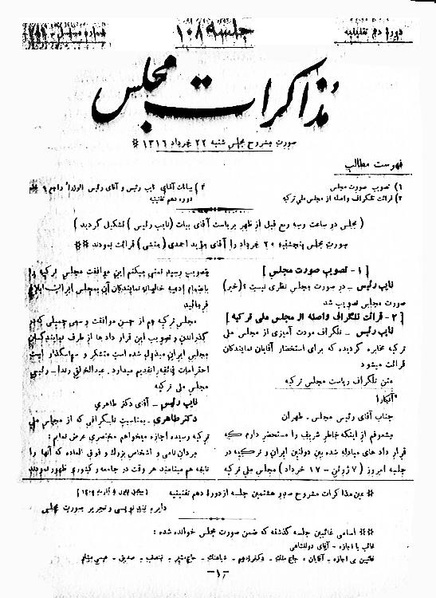 دوره دهم تقنینیه
جلسه ۱۰۸۹
مذاکرات مجلس
صورت مشروح مجلس شنبه ۲۲ خرداد ۱۳۱۶ *
فهرست مطالب
۱) تصویب صورت مجلس
۲) قرائت تلگراف واصله از مجلس ملی ترکیه
دوره دهم تقنینیه
(مجلس دو ساعت و سه ربع قبل از ظهر بریاست آقای بیات (نایب رئیس) تشکیل گردید)
صورت مجلس پنجشنبه ۲۰ خرداد را آقای مؤید احمدی (منشی) قرائت نمودند **
[ ۱- تصویب صورت مجلس ]
نایب رئیس - در صورت مجلس نظری نیست؟ (خیر)
صورت مجلس تصویب شد
[ ۲- قرائت تلگراف واصله از مجلس ملی ترکیه ]
نایب رئیس - تلگراف مودت آمیزی از مجلس ملی
ترکیه مخابره گردیده که برای استحضار آقایان نمایندگان
قرائت میشود
متن تلگراف ریاست مجلس ترکیه
آنکارا
جناب آقای رئیس مجلس - طهران
مشعوفم از اینکه خاطر شریف را مستحضر دارم که
قرار داد های مبادله شده بین دولتین ایران و ترکیه در
جلسه امروز (۷ ژوئن - ۱۷ خرداد) مجلس ملی ترکیه
بتصویب رسید تمنی میکنم این موافقت مجلس ترکیه را
فرمائید
مجلس ترکیه هم از حسن موافقت و
گذراندن و تصویب این قرار داد ها از طرف نمایندگان
مجلس ایران مبذول شده است متشکر و سپاسگذار است
احترامات فائقه را تقدیم میدارد. عبدالخالق رندا - رئیس
مجلس ملی ترکیه
نایب رئیس - آقای دکتر طاهری
دکتر طاهری - بمناسبت تلگرافی که از مجلس ملی
ترکیه رسیده اجازه میخواهم مختصری عرض نمایم:
مردان نامی و اشخاص بزرگ و فوق العاده که آنها را
نابغه هم مینامند هر وقت در جامعه و کشوری ظهور نمودند
** عین مذاکرات مشروح هشتمین جلسه از دوره دهم تقنینیه
دایره تند نویسی و تحریر صورت مجلس
** اسامی غائبین جلسه گذشته که ضمن صورت مجلس خوانده شده:
غائب با اجازه - آقای دولتشاهی
غائبین بی اجازه - آقایان:
-۱-